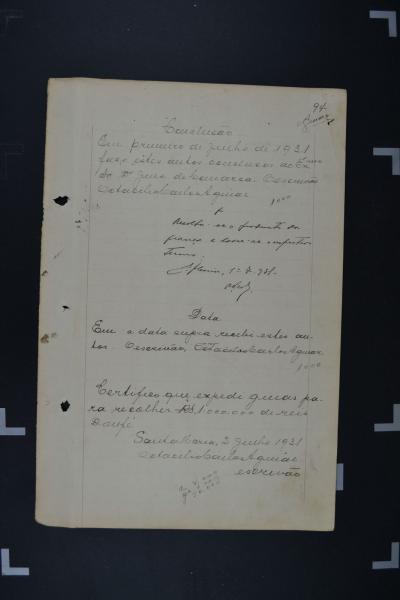 94
Conclusão
Em primeiro de Julho de 1931
faço estes autos conclusos ao Exmo
Sr. Dr. Juiz de Comarca. O escrivão
Octacilio Carlos Aguiar
1000
Recolha-se o producto da
fiança e lavre-se
termo.
1-7-931-
Data
Em a data supra recebi estes au-
tos. O escrivão, Octacilio Carlos Aguiar
1000
Certifico que expedi guias pa-
ra recolher R$ 1.000.000 de reis
Dou fé
Santa Maria, 2 Julho 1931
Octacilio Carlos Aguiar
escrivão